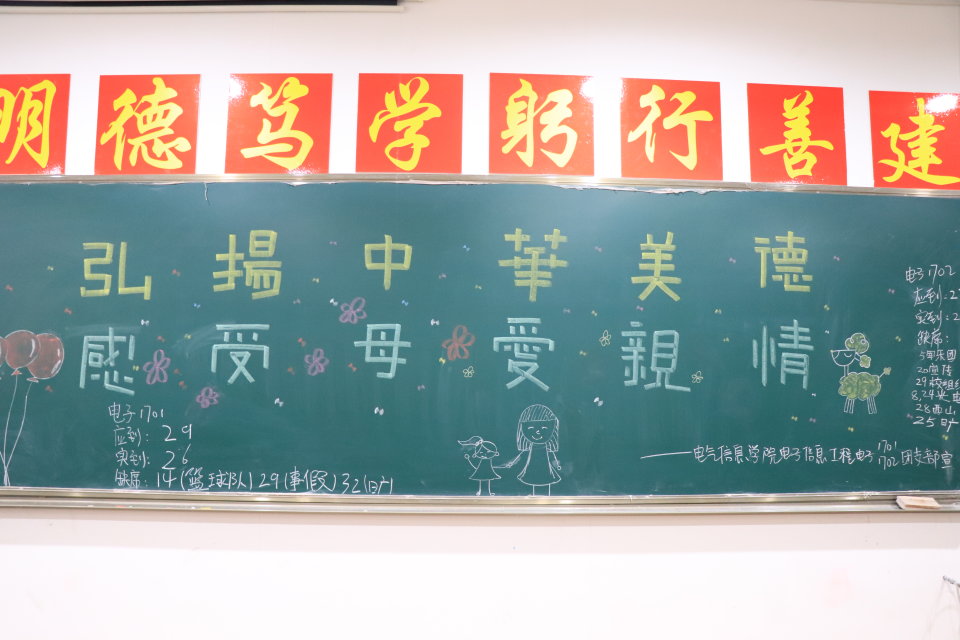 明德笃学躬行善建
弘揚中華美德
感受母愛親情
电子1701
应到：29
实到：26
缺席：14(篮球队)29(事假)32(旷)
——电气信息学院电子信息工程电子1701 1702团支部宣
电子1702
应到：2
实到：2
缺席：
20宣传
28西山
25旷